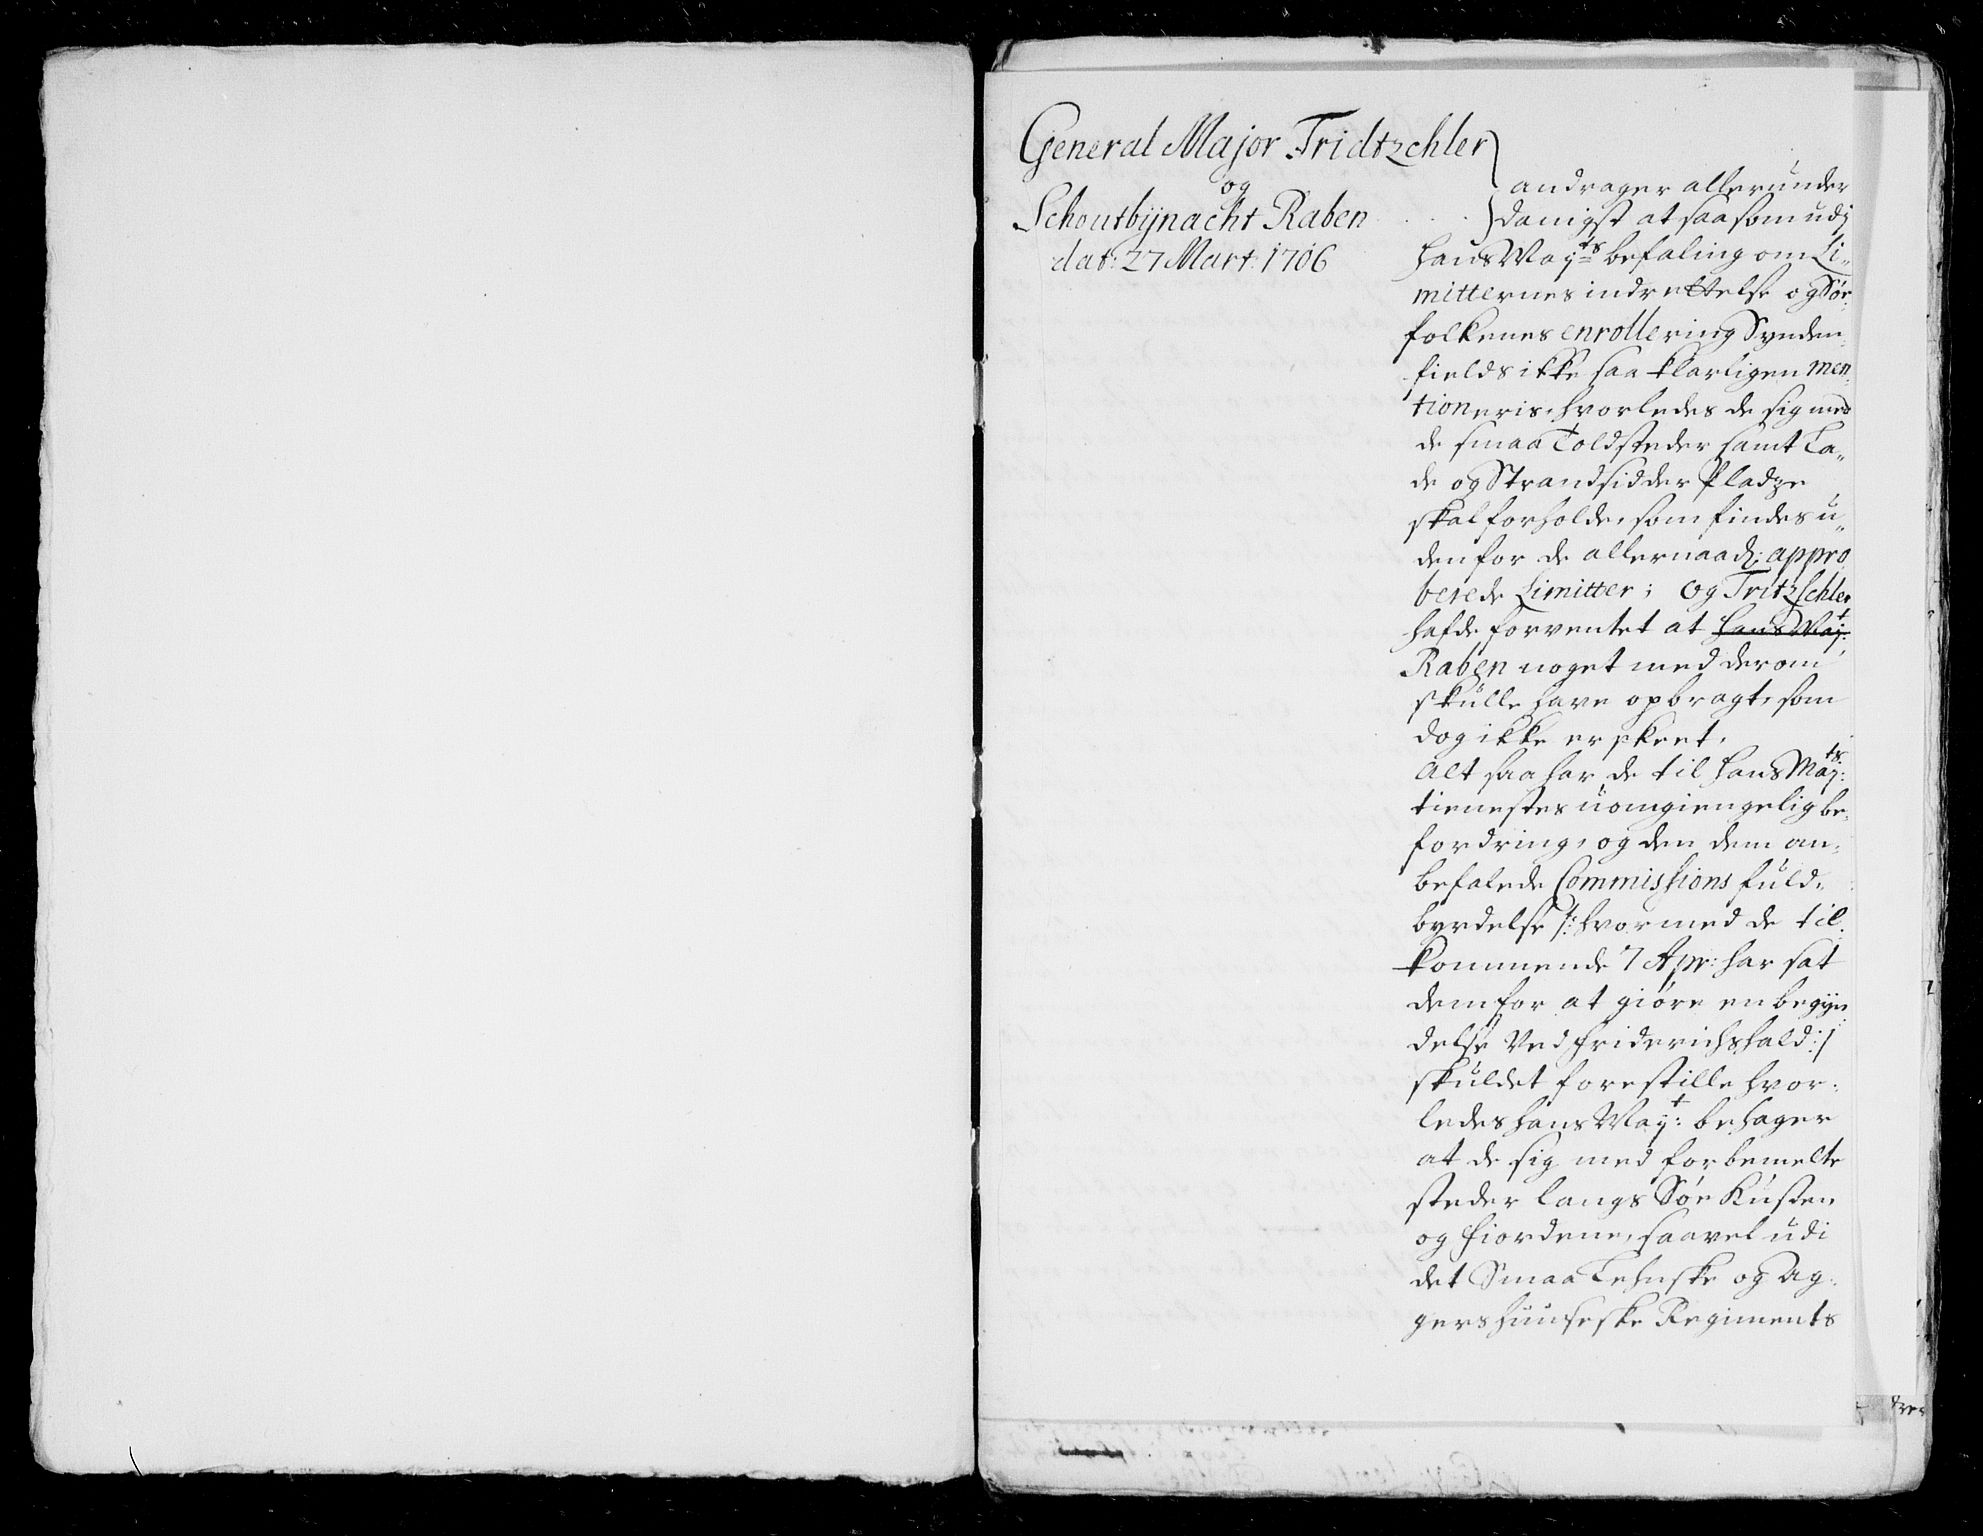 General Major Tridtzchler
og
Schoutbÿnacht Raben
dat: 27 Mart: 1706
andrager allerunder
danigst at saasom udj
hans Maÿts befaling om Li„
mitternes indrettelse og Søe
folkenes enrollering Synden
fields ikke saa klarligen men
tioneris, hvorledes de sig med
de smaa Toldsteder samt La„
de og Strandsidder Pladze
skal forholde, som findes u„
den for de allernaad: appro
berede Limitter; og Tritzschler
hafde forventet at hans Maÿt:
Raben noget med derom
skulle have opbragt, som
dog ikke er skeet.
Alt saa har de til hans Maÿ:ts
tienestes uomgiengelig be„
fordring, og den dem an„
befalede Commissions fuld„
byrdelse /: hvormed de til
kommende 7 Apr: har sat
dem for at giøre en begÿn
delse ved Friderichshald :/
skuldet forestille hvor„
ledes hans Maÿt: behager
at de sig med forbemelte
steder langs Søe Kusten
og fiordene, saavel udi
det Smaa Lehnske og Ag„
gershuuseske Regiments